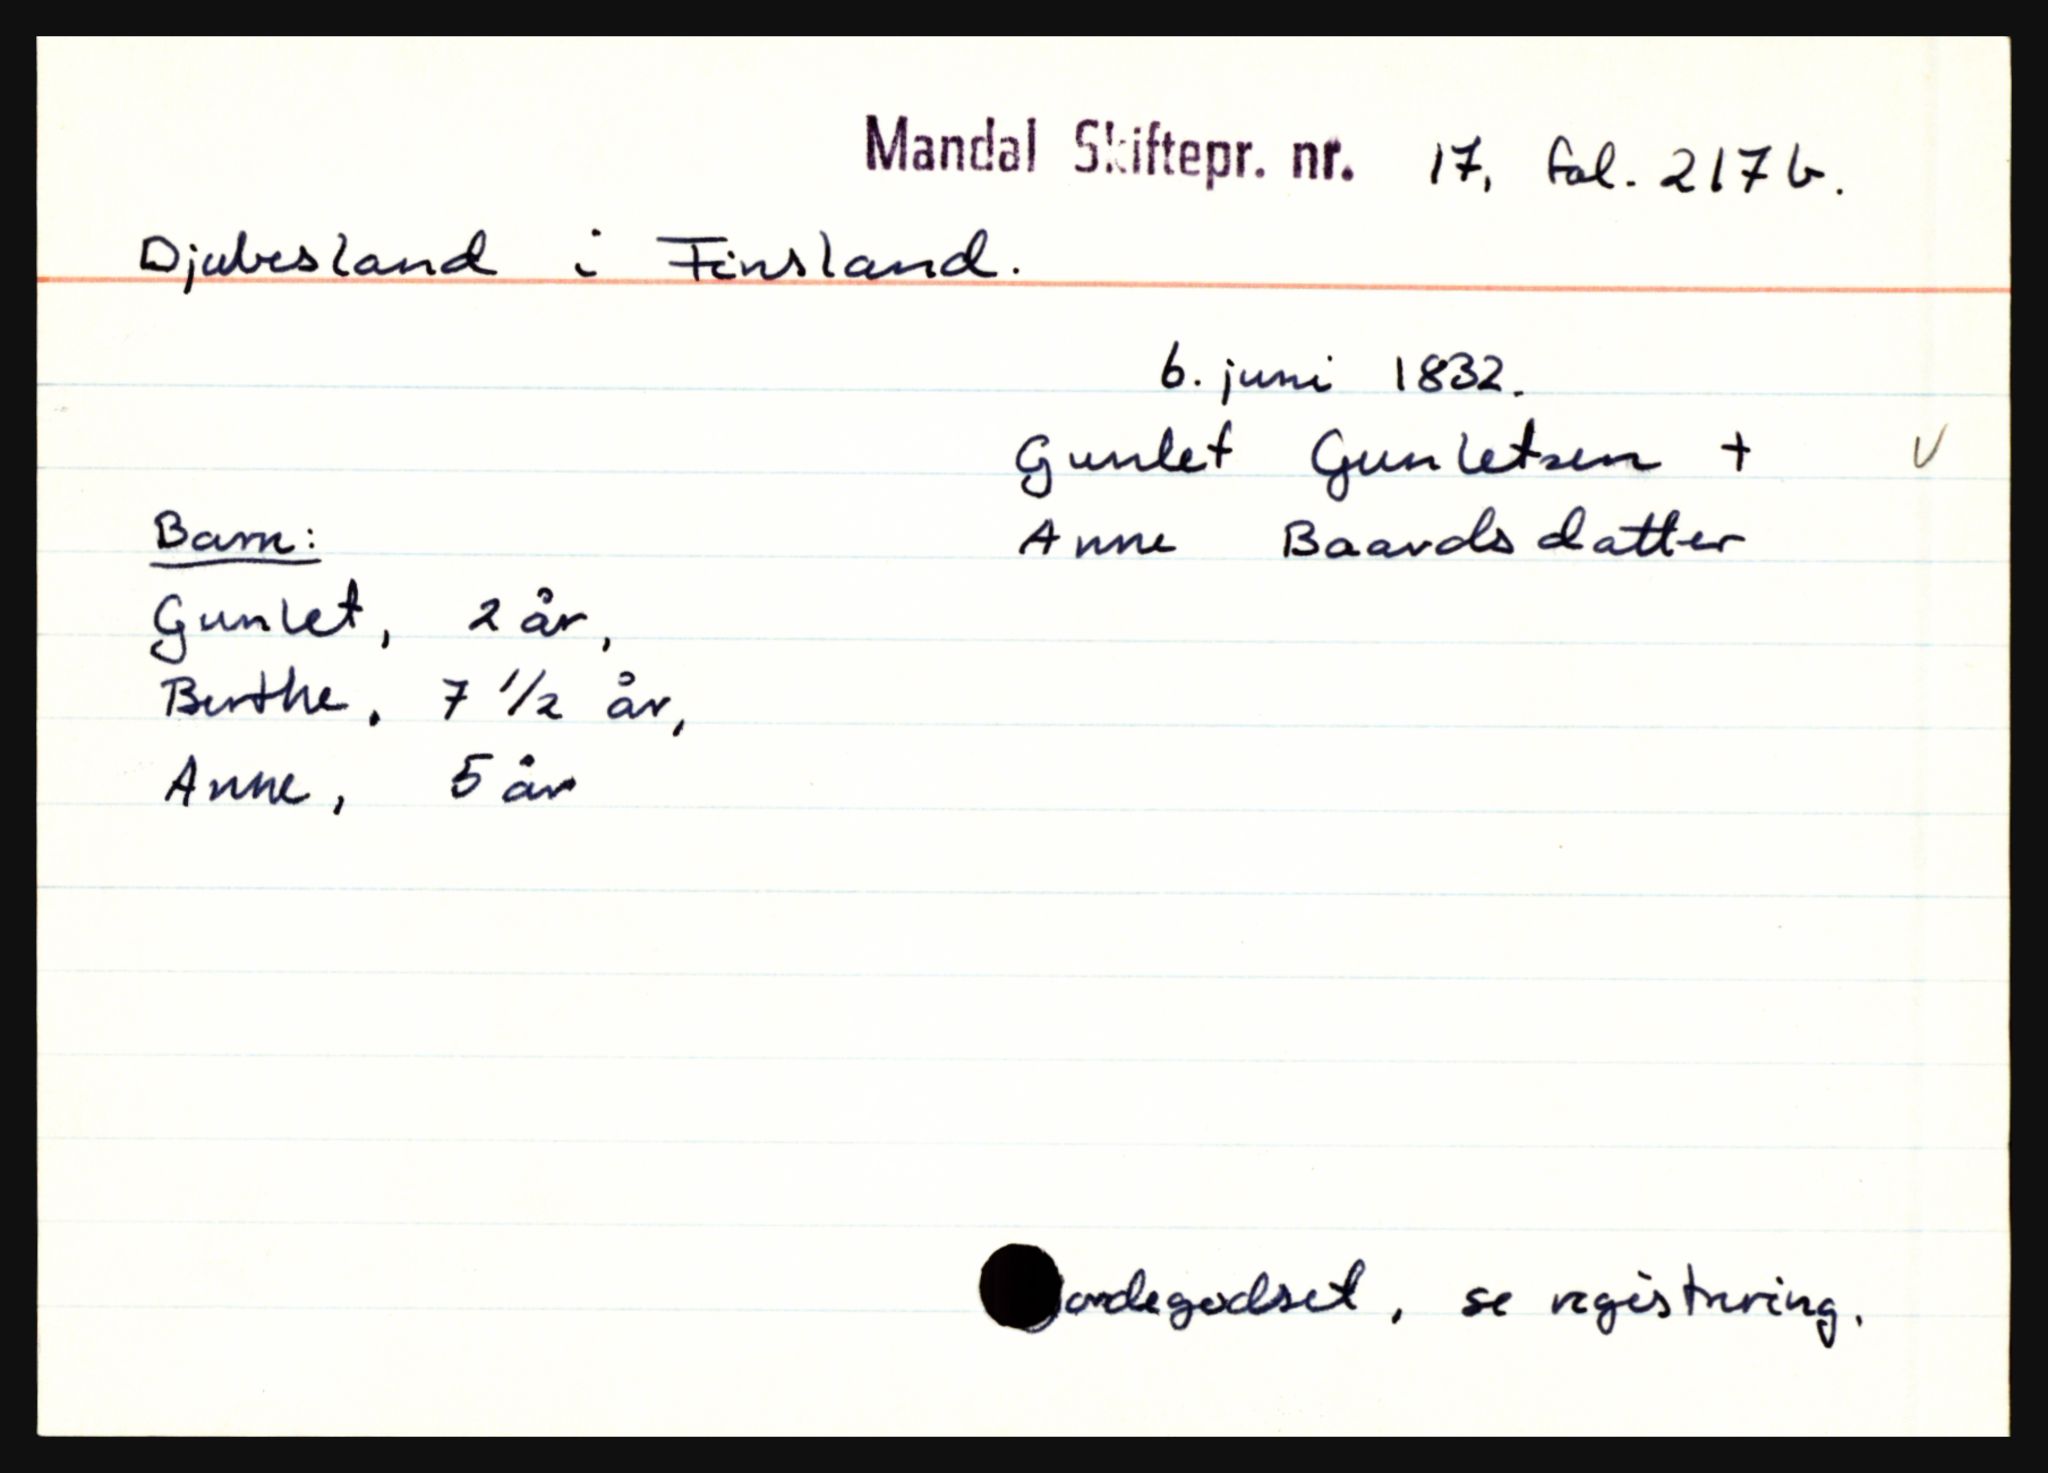 Mandal Skiftepr. nr. 17, fol. 217b.
Djubesland i Finsland.
6. juni 1832.
Gunlet Gunletsen + v
Anne Baardsdatter
Barn:
Gunlet, 2 år,
Berthe, 7 1/2 år,
Anne, 5 år
Jordegodset, se registrering.